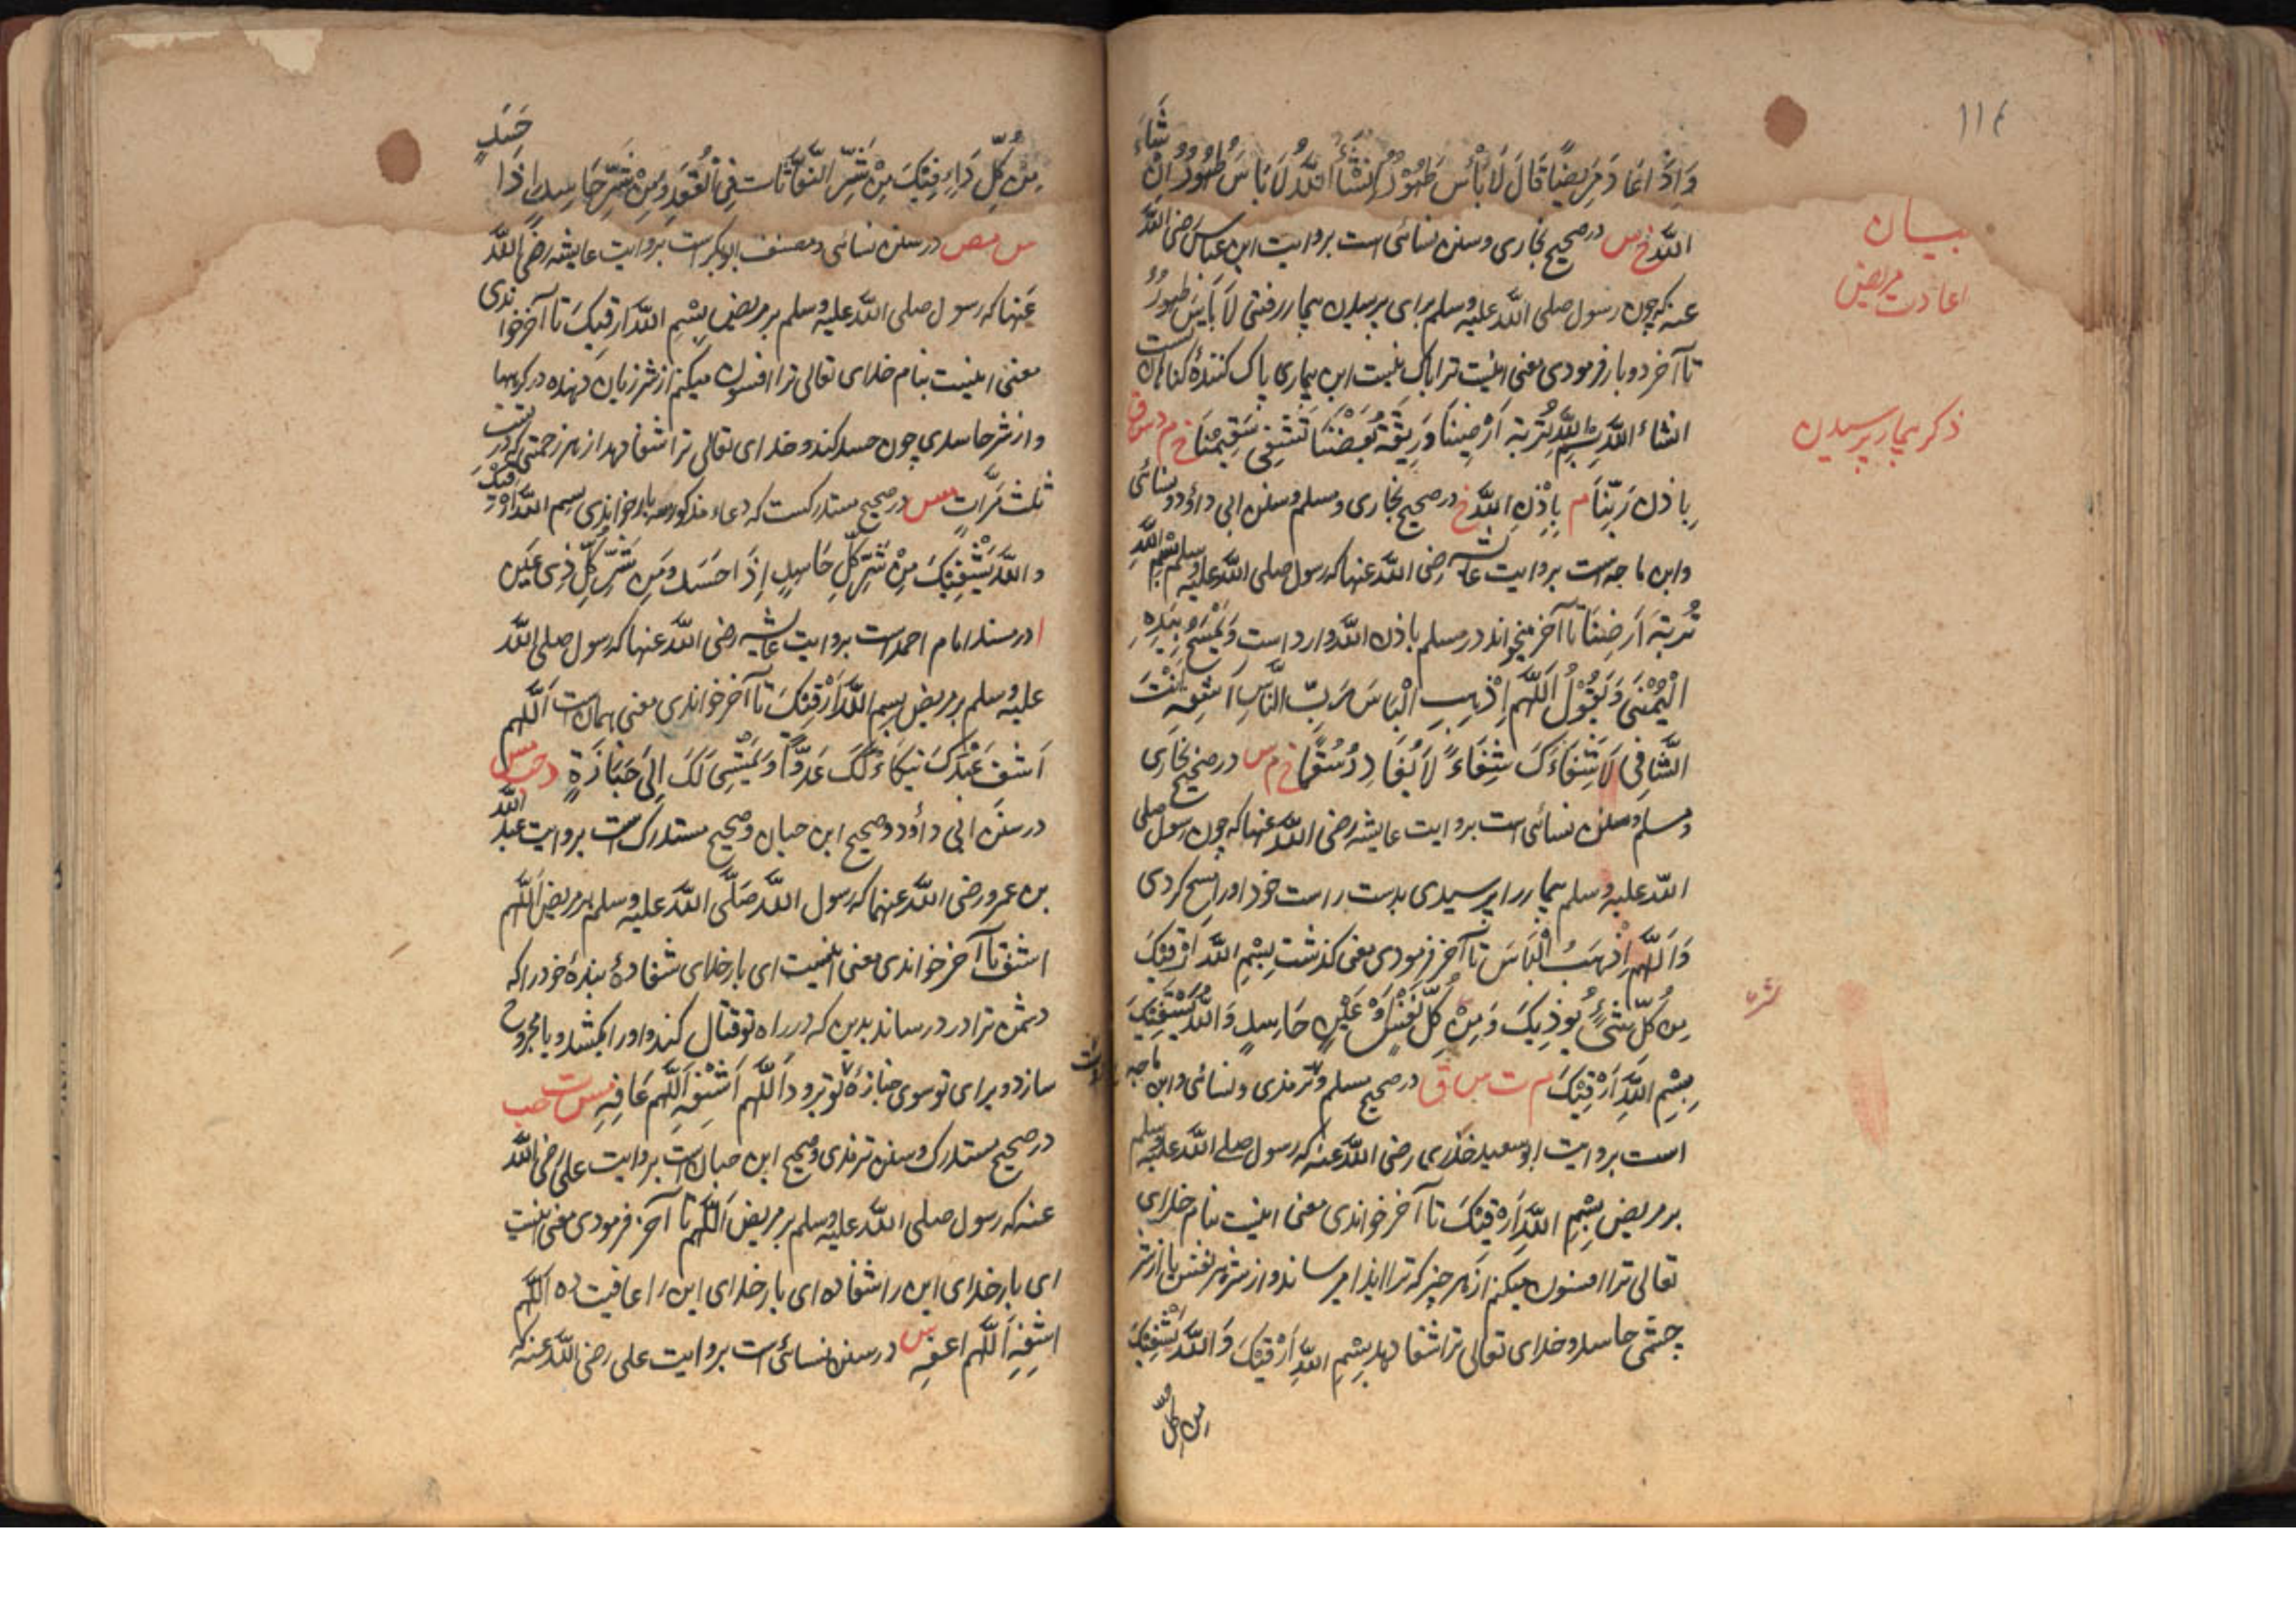 ۱۱۴
بیان
اعادت مریض
ذکر بیمار پرسیدن
وَاِذَا عَادَ مَرِیضًا قَالَ لَا بَأْسَ طَهُوْرٌ اِنْشَآءَ اللّٰهُ لَا بَاسَ طَهُوْرٌ اِنْ شَآءَ
اللّٰهُ خ س در صحیح بخاری و سنن نسائی است بروایت ابن عباس رضی اللّٰه
عنه که چون رسول صلی اللّٰه علیه وسلم برای پرسیدن بیمار رفتی لا بَاسَ طَهُورٌ
تا آخر دو بار فرمودی معنی اینست ترا باک نیست این بیماری پاک کنندهٔ گناهان است
انشاء اللّٰه بِسْمِ اللّٰهِ تُرْبَةُ اَرْضِنَا وَرِیْقَةُ بَعْضِنَا تَشْفِیْ سَقِیْمَنَا خ م د س ق
بِاِذْنِ رَبِّنَا م بِاِذْنِ اللّٰهِ خ در صحیح بخاری و مسلم و سنن ابی داؤد و نسائی
وابن ماجه است بروایت عائشه رضی اللّٰه عنها که رسول صلی اللّٰه علیه وسلم بِسْمِ اللّٰهِ
تُرْبَةُ اَرْضِنَا تا آخر میخواند در مسلم باذن اللّٰه وارد است وَیَمْسَحُ بِیَدِهِ
الْیُمْنٰی وَیَقُوْلُ اَللّٰهُمَّ اِذْهِبِ الْبَاسَ رَبَّ النَّاسِ اَشْفِهِ اَنْتَ
الشَّافِی لَا شِفَاءَ کَ شِفَاءً لَا یُغَادِرُ سُقْمًا خ م س در صحیح بخاری
و مسلم و سنن نسائی است بروایت عایشه رضی اللّٰه عنها که چون رسول صلی
اللّٰه علیه وسلم بیمار را پرسیدی بدست راست خود او را مسح کردی
وَاَللّٰهُمَّ اِذْهَبِ الْبَاسَ تا آخر فرمودی معنی گذشت بِسْمِ اللّٰهِ اَرْقِیْکَ
مِنْ کُلِّ شَیْءٍ یُوْذِیْکَ وَمِنْ کُلِّ نَفْسٍ اَوْ عَیْنٍ حَاسِدٍ وَاللّٰهُ یَشْفِیْکَ
بِسْمِ اللّٰهِ اَرْقِیْکَ م ت س ق در صحیح مسلم و ترمذی و نسائی و ابن ماجه
است بروایت ابو سعید خدری رضی اللّٰه عنه که رسول صلی اللّٰه علیه وسلم
بر مریض بِسْمِ اللّٰهِ اَرْقِیْکَ تا آخر خواندی معنی اینست بنام خدای
تعالی ترا افسون میکنم از هر چیز که ترا ایذا میرساند و از شر هر نفس یا از شر
چشمی حاسد و خدای تعالی ترا شفا دهد بِسْمِ اللّٰهِ اَرْقِیْکَ وَاللّٰهُ یَشْفِیْکَ
مِن کُلِّ
مِنْ کُلِّ دَاءٍ فِیْکَ مِنْ شَرِّ النَّفَّاثَاتِ فِی الْعُقَدِ وَمِنْ شَرِّ حَاسِدٍ اِذَا حَسَدَ
س مص در سنن نسائی و مصنف ابو بکر است بروایت عایشه رضی اللّٰه
عنها که رسول صلی اللّٰه علیه وسلم بر مریض بِسْمِ اللّٰهِ ارقیک تا آخر خواندی
معنی اینست بنام خدای تعالی ترا افسون میکنم از شر زیان دهنده در گرهها
و از شر حاسدی چون حسد کند و خدای تعالی ترا شفا دهد از هر زحمتی که در تست
ثلث مَرَّاتٍ مس در صحیح مستدرکست که دعاء مذکور سه بار خواندی بسم اللّٰه ارقیک
و اللّٰه یَشْفِیْکَ مِنْ شَرِّ کُلِّ حَاسِدٍ اِذَا حَسَدَ وَمِنْ شَرِّ کُلِّ ذِیْ عَیْنٍ
ا در مسند امام احمد است بروایت عایشه رضی اللّٰه عنها که رسول صلی اللّٰه
علیه وسلم بر مریض بسم اللّٰه اَرْقِیْکَ تا آخر خواندی معنی همان است اَللّٰهُمَّ
اَشْفِ عَبْدَکَ یَنْکَاءُ لَکَ عَدُوًّا وَیَمْشِیْ لَکَ اِلٰی جَنَازَةٍ د حب مس
در سنن ابی داؤد و صحیح ابن حبان و صحیح مستدرک است بروایت عبد اللّٰه
بن عمرو رضی اللّٰه عنهما که رسول اللّٰه صَلَّی اللّٰه علیه وسلم بر مریض اَللّٰهُمَّ
اشف تا آخر خواندی معنی اینست ای بار خدای شفا ده بندهٔ خود را که
دشمن ترا در درساند بدین که در راه تو قتال کند و او را بکشد و یا مجروح
سازد و برای تو سوی جنازهٔ تو برود اَللّٰهُمَّ اَشْفِهِ اَللّٰهُمَّ عَافِهِ مس ت حب
در صحیح مستدرک و سنن ترمذی و صحیح ابن حبان است بروایت علی رضی اللّٰه
عنه که رسول صلی اللّٰه علیه وسلم بر مریض اَللّٰهُمَّ تا آخر فرمودی معنی اینست
ای بار خدای این را شفا ده ای بار خدای این را عافیت ده اَللّٰهُمَّ
اشْفِهِ اَللّٰهُمَّ اعفه س در سنن نسائی است بروایت علی رضی اللّٰه عنه که